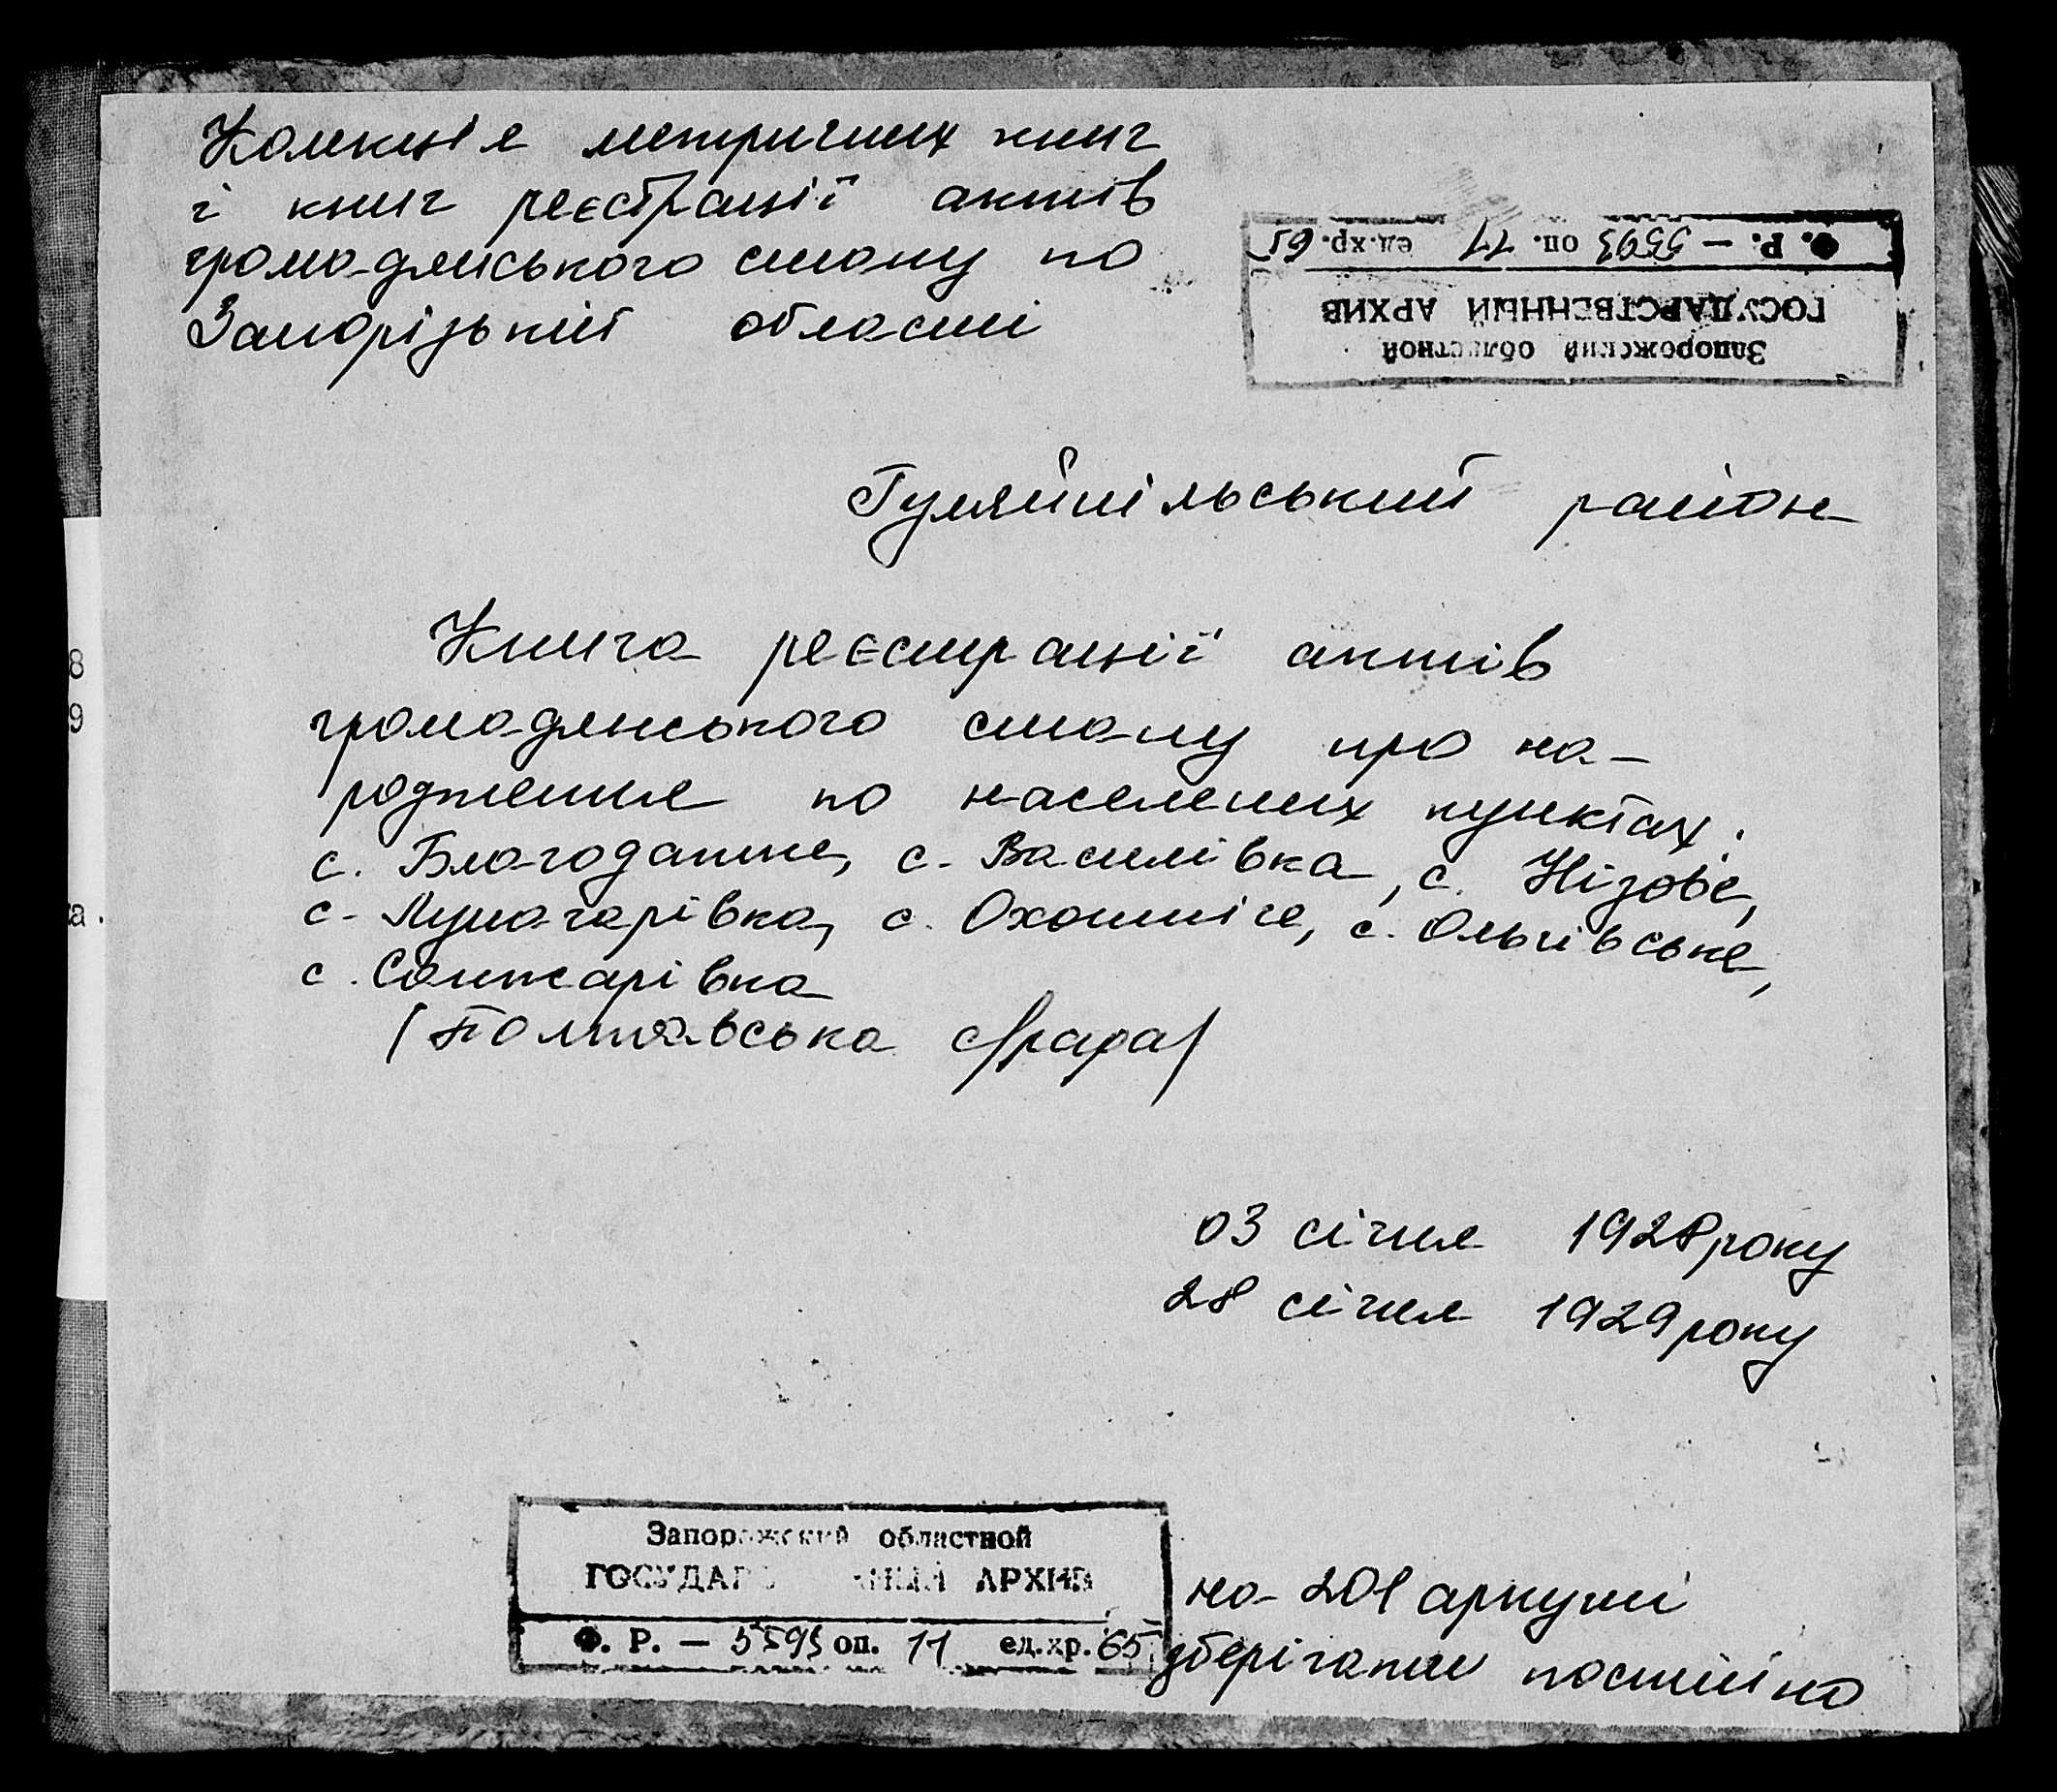 Колекція метричних книг
і книг реєстрації актів
громадянського стану по
Запорізькій області
Ф. Р. — 5593 оп. 11 ед.хр. 65
ГОСУДАРСТВЕННЫЙ АРХИВ
Запорожский областной
Гуляйпільський район
Книга реєстрації актів
громадянського стану про на-
родження по населених пунктах:
с. Благодатне, с. Василівка, с. Нізове,
с. Луначарівка, с. Охотніче, с. Ольгівське,
с. Санжарівка
/Полтавська с/рада/
03 січня 1928 року
28 січня 1929 року
Запорожский областной
ГОСУДАРСТВЕННЫЙ АРХИВ
Ф. Р. — 5593 оп. 11 ед.хр. 65
на 201 аркуші
зберігати постійно
8
9
а.